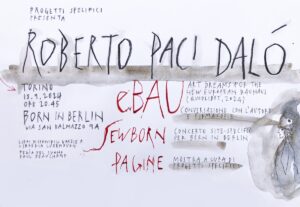 PROGETTI SPECIFICI
PRESENTA
ROBERTO PACI DALÒ
TORINO
ORE 20.45
BORN IN BERLIN
VIA SAN DALMAZZO 9A
eBAU
ART DREAMS FOR THE
NEW EUROPEAN BAUHAUS
(QUODLIBET, 2024)
CONVERSAZIONE CON L'AUTORE
SEWBORN
CONCERTO SITE-SPECIFIC
PER BORN IN BERLIN
PAGINE
MOSTRA A CURA DI
PROGETTI SPECIFICI